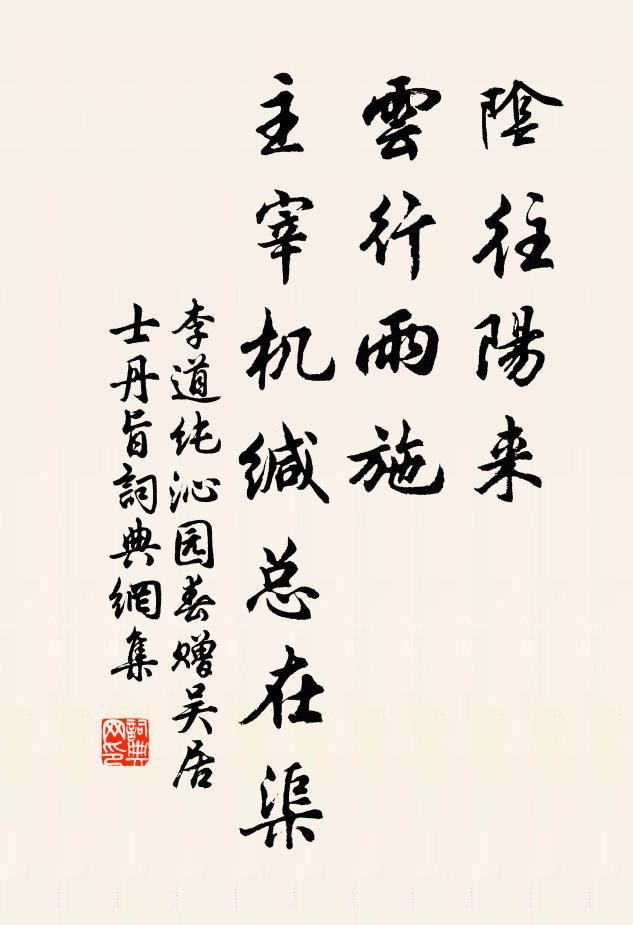 陰往陽来
雲行雨施
主宰机缄总在渠
李道纯沁园春赠吴居
士丹旨詞典網集
詞典
网印